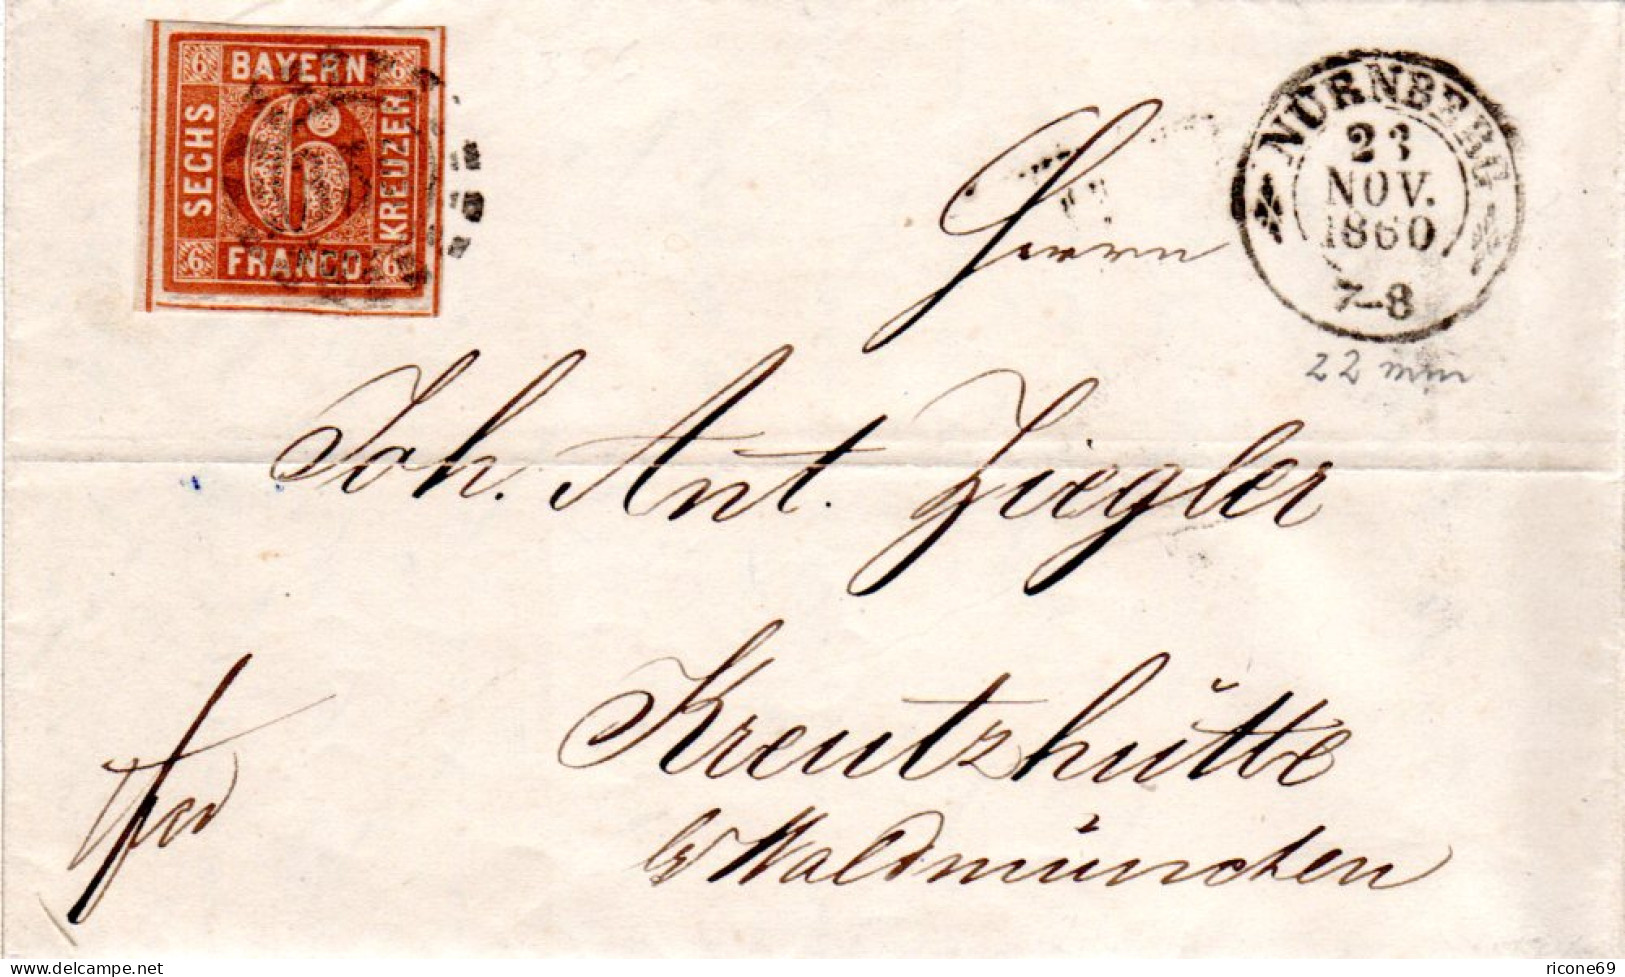 6 BAYERN 6
SECHS
6
KREUZER
6 FRANCO 6
NÜRNBERG
23
NOV.
1860
7-8
22 mm
Herrn
Joh. Ant. Ziegler
Kreutzhütte
b/ Waldmünchen
delcampe.net
ricone69